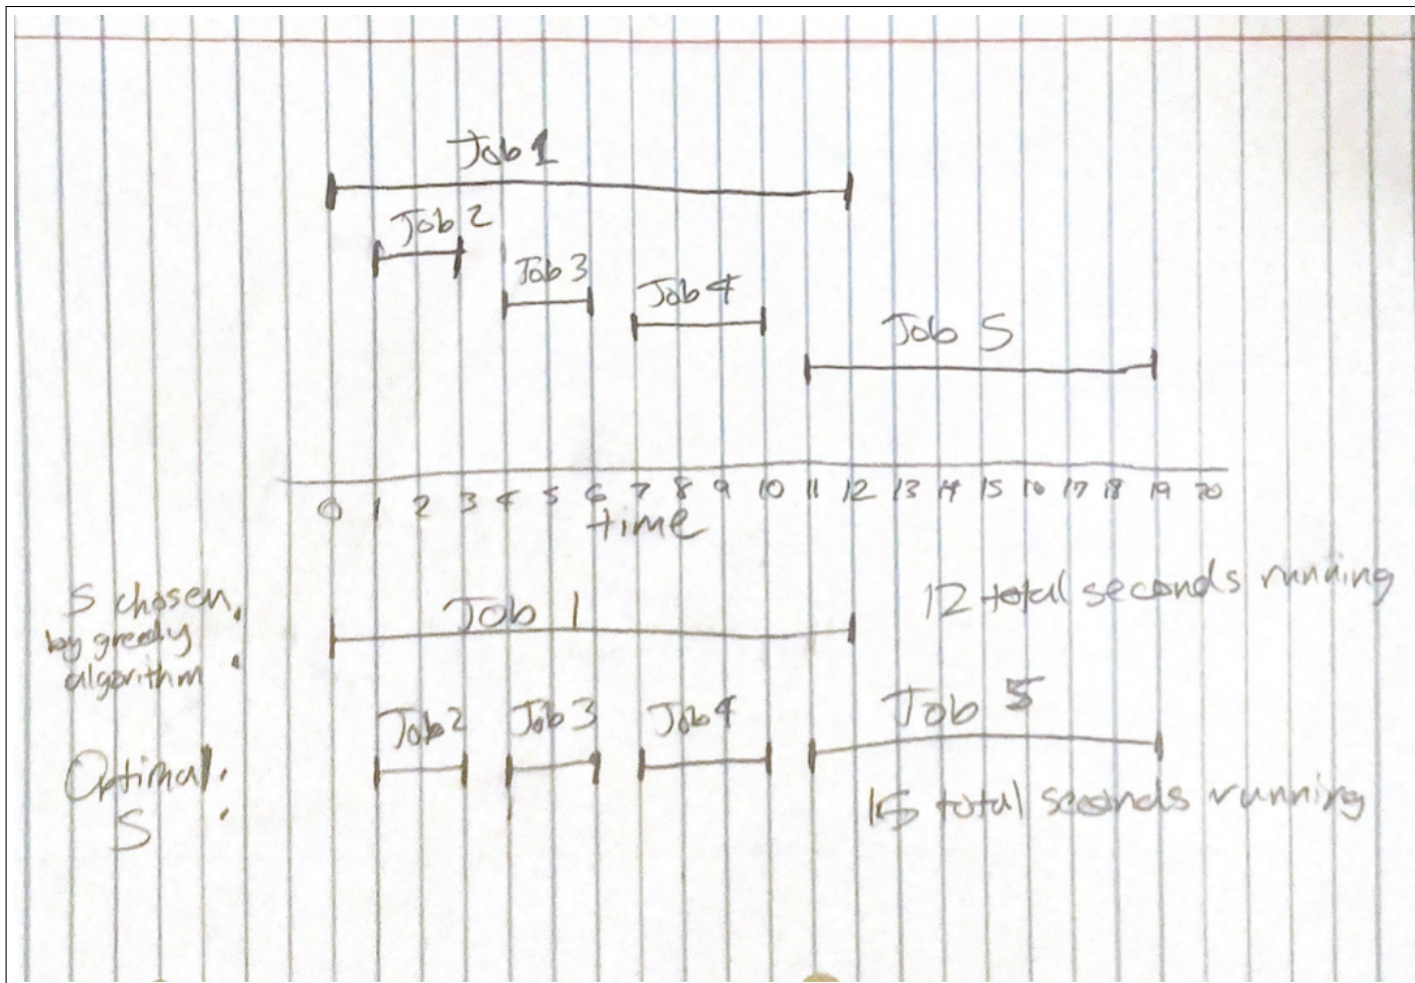 Job 1
Job 2
Job 3
Job 4
Job 5
0 1 2 3 4 5 6 7 8 9 10 11 12 13 14 15 16 17 18 19 20
time
S chosen
by greedy
algorithm :
Job 1
12 total seconds running
Optimal
S :
Job 2 Job 3 Job 4 Job 5
15 total seconds running